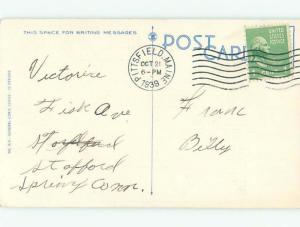 THIS SPACE FOR WRITING MESSAGES
POST CARD
PITTSFIELD, MAINE
OCT 21
6-PM
1939
UNITED STATES POSTAGE
Victorire
Fisk Ave
Stafford
Spring Conn.
Frank
Billy